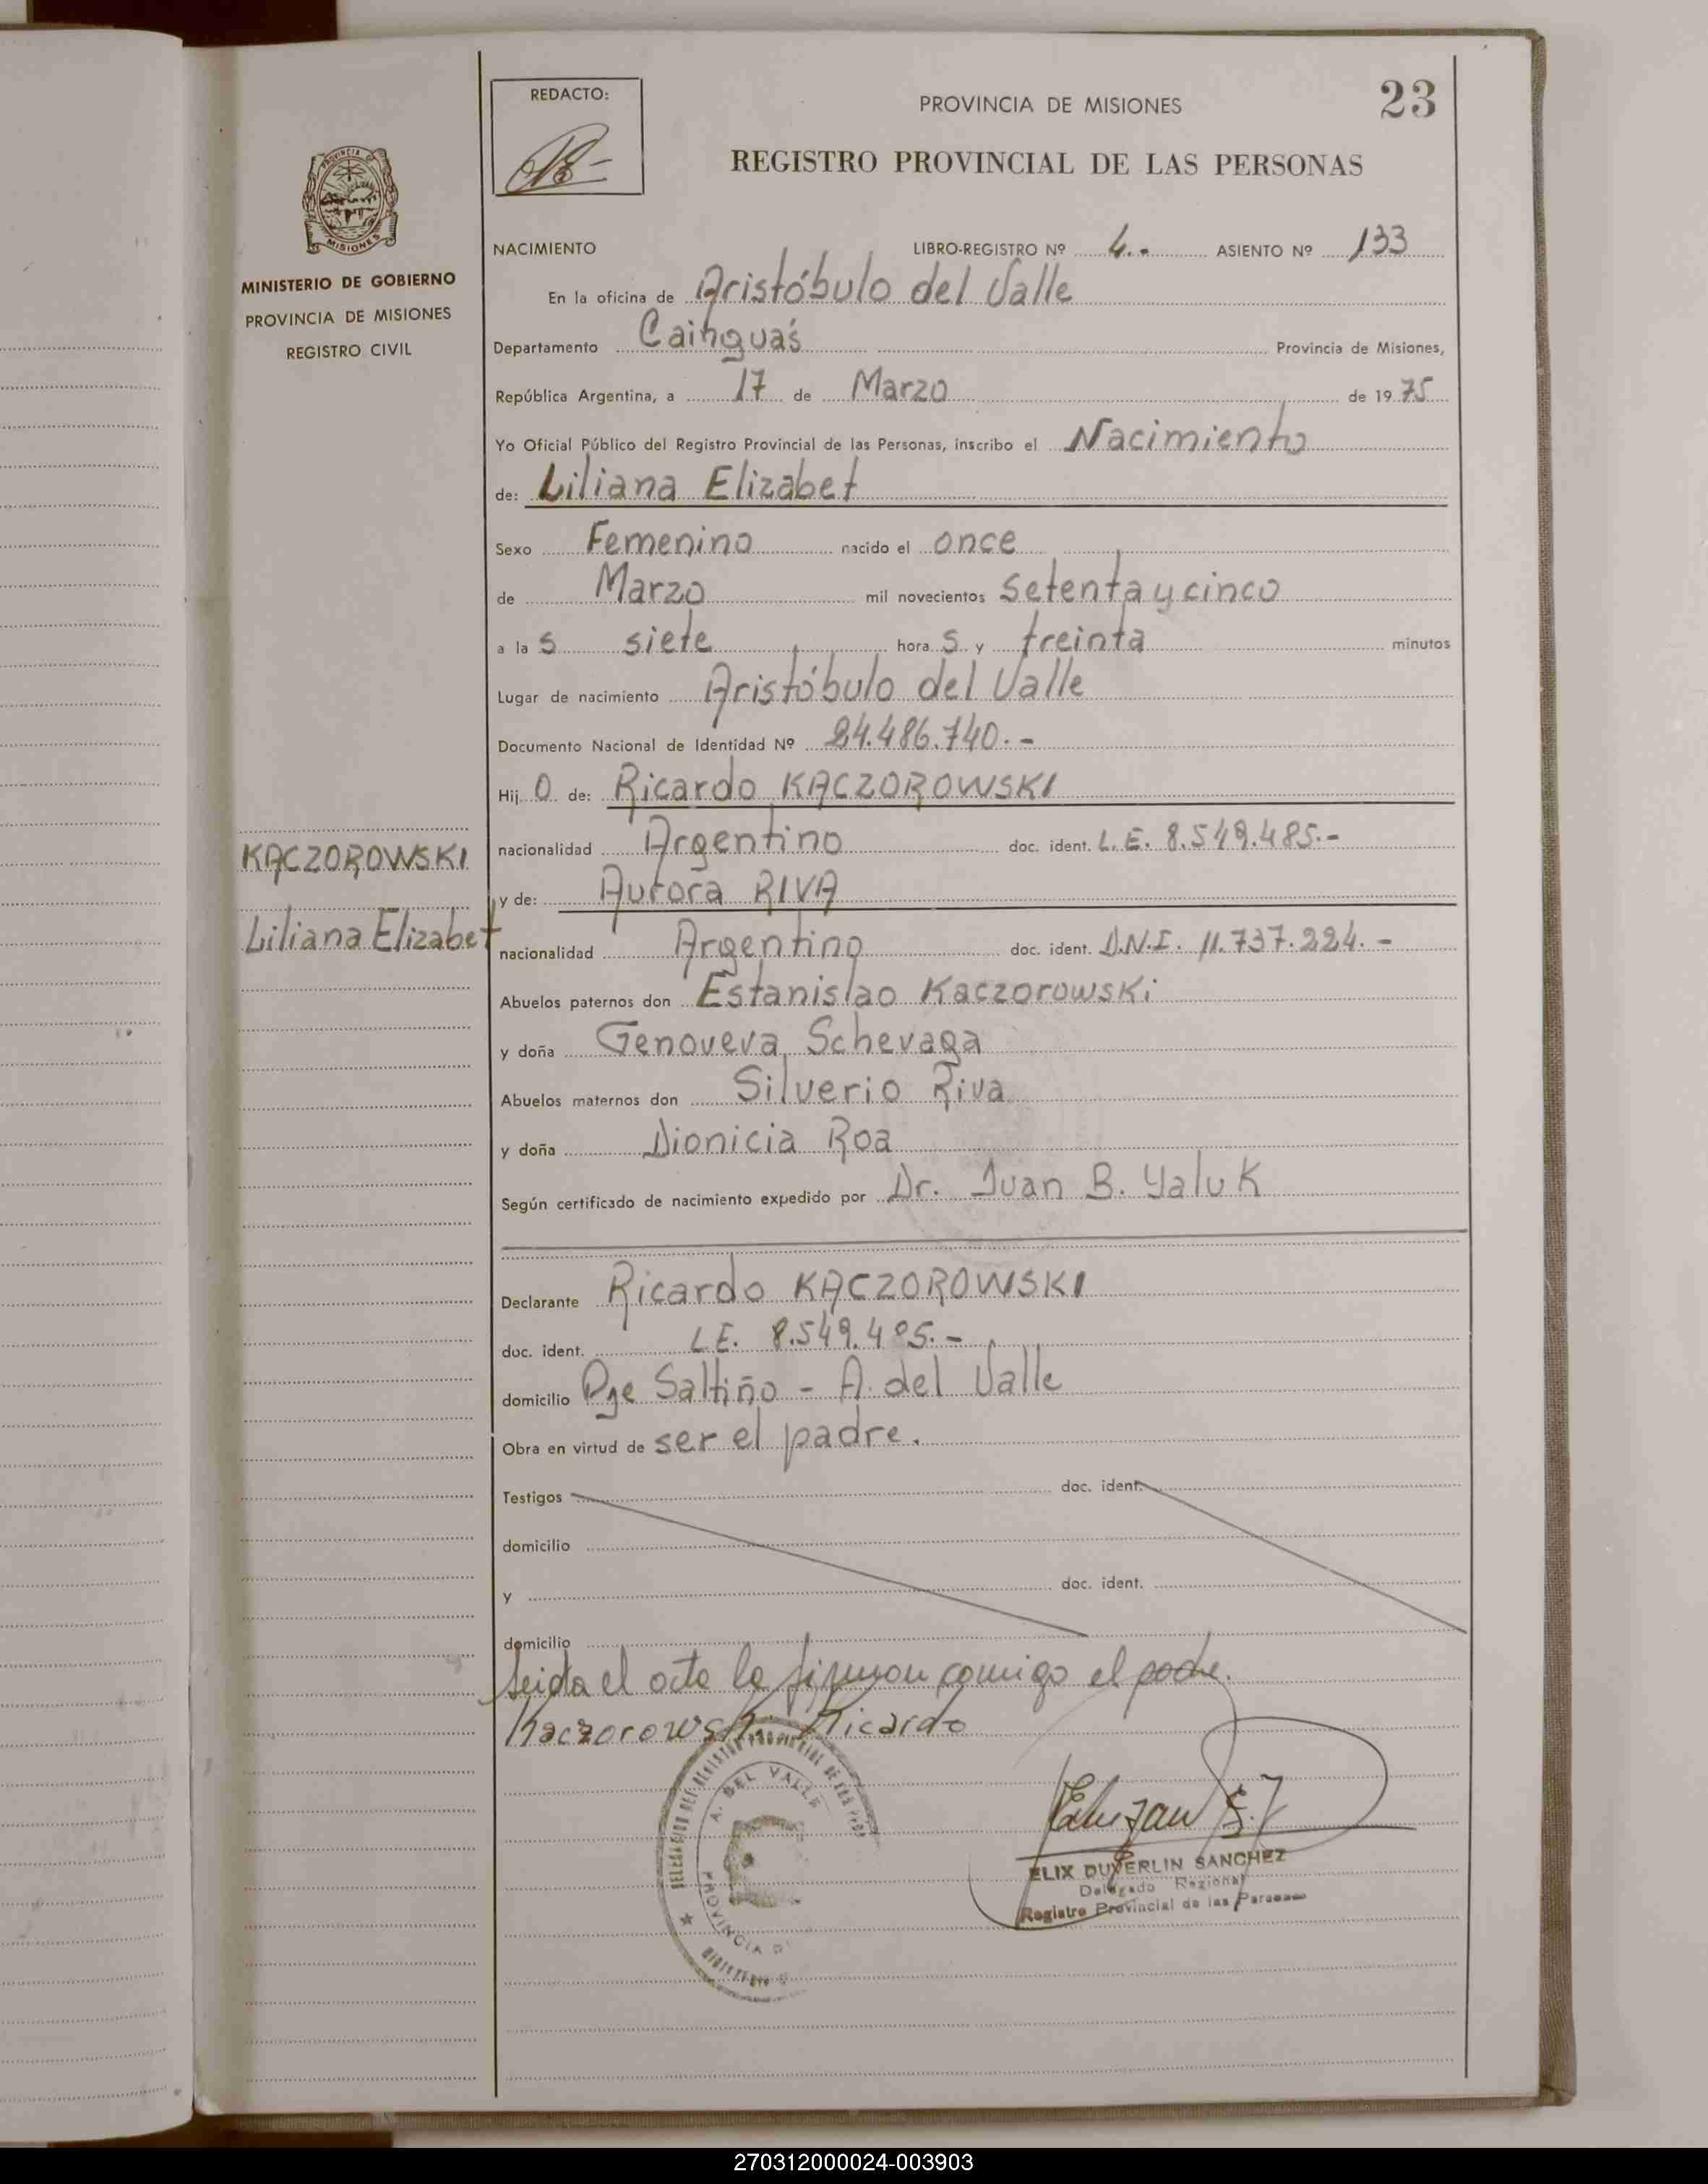 23
REDACTO:
PROVINCIA DE MISIONES
REGISTRO PROVINCIAL DE LAS PERSONAS
PROVINCIA DE
MISIONES
MINISTERIO DE GOBIERNO
PROVINCIA DE MISIONES
REGISTRO CIVIL
KACZOROWSKI
Liliana Elizabet
NACIMIENTO LIBRO-REGISTRO Nº 4.- ASIENTO Nº 133
En la oficina de Aristóbulo del Valle
Departamento Cainguás Provincia de Misiones,
República Argentina, a 17 de Marzo de 1975
Yo Oficial Público del Registro Provincial de las Personas, inscribo el Nacimiento
de: Liliana Elizabet
Sexo Femenino nacido el once
de Marzo mil novecientos setenta y cinco
a las siete horas y treinta minutos
Lugar de nacimiento Aristóbulo del Valle
Documento Nacional de Identidad Nº 24.486.740.-
Hijo de: Ricardo KACZOROWSKI
nacionalidad Argentino doc. ident. L.E. 8.549.485.-
y de: Aurora RIVA
nacionalidad Argentino doc. ident. D.N.I. 11.737.224.-
Abuelos paternos don Estanislao Kaczorowski
y doña Genoveva Schevaga
Abuelos maternos don Silverio Riva
y doña Dionicia Roa
Según certificado de nacimiento expedido por Dr. Juan B. Yaluk
Declarante Ricardo KACZOROWSKI
doc. ident. L.E. 8.549.485.-
domicilio Pje Saltiño - A. del Valle
Obra en virtud de ser el padre.
Testigos doc. ident.
domicilio
y doc. ident.
domicilio
Leida el acta la firman comigo el padre.
Kaczorowski Ricardo
DELEGACION DEL REGISTRO PROVINCIAL DE LAS
A. DEL VALLE
PROVINCIA D
ELIX DUVERLIN SANCHEZ
Delegado Regional
Registro Provincial de las Personas
270312000024-003903